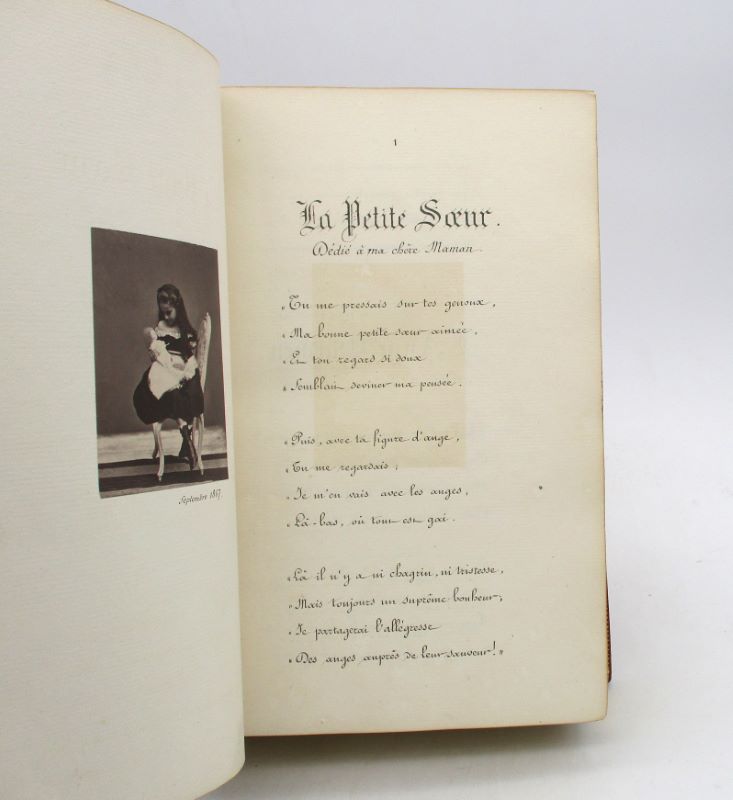 Septembre 1867.
1
La Petite Sœur.
Dédié à ma chère Maman.
« Tu me pressais sur tes genoux,
« Ma bonne petite sœur aimée,
« Et ton regard si doux
« Semblait deviner ma pensée.
« Puis, avec ta figure d'ange,
« Tu me regardais ;
« Je m'en vais avec les anges,
« Là-bas, où tout est gai.
« Là il n'y a ni chagrin, ni tristesse,
« Mais toujours un suprême bonheur ;
« Je partagerai l'allégresse
« Des anges auprès de leur sauveur ! »